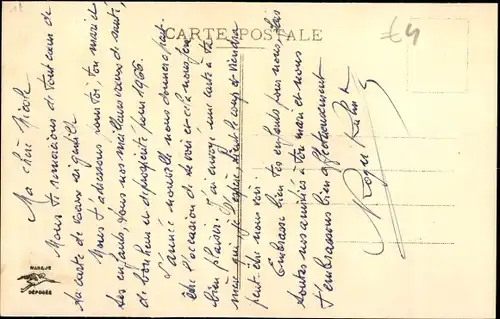 CARTE POSTALE
£4
Ma chère Nicole
Nous te remercions de tout cœur de
ta carte de vœux reçue ce
Nous t'adressons pour toi, ton mari et
les enfants, tous nos meilleurs vœux de santé,
de bonheur et de prospérité pour 1966.
L'année nouvelle nous donnera peut
être l'occasion de te voir et cela nous fera
bien plaisir. J'ai envoyé une carte à ta
maman qui je espère, tient le coup et viendra
peut être nous voir.
Embrasse bien tes enfants pour nous, dis
toutes nos amitiés à ton mari et nous
t'embrassons bien affectueusement
Roger
MARQUE
DÉPOSÉE